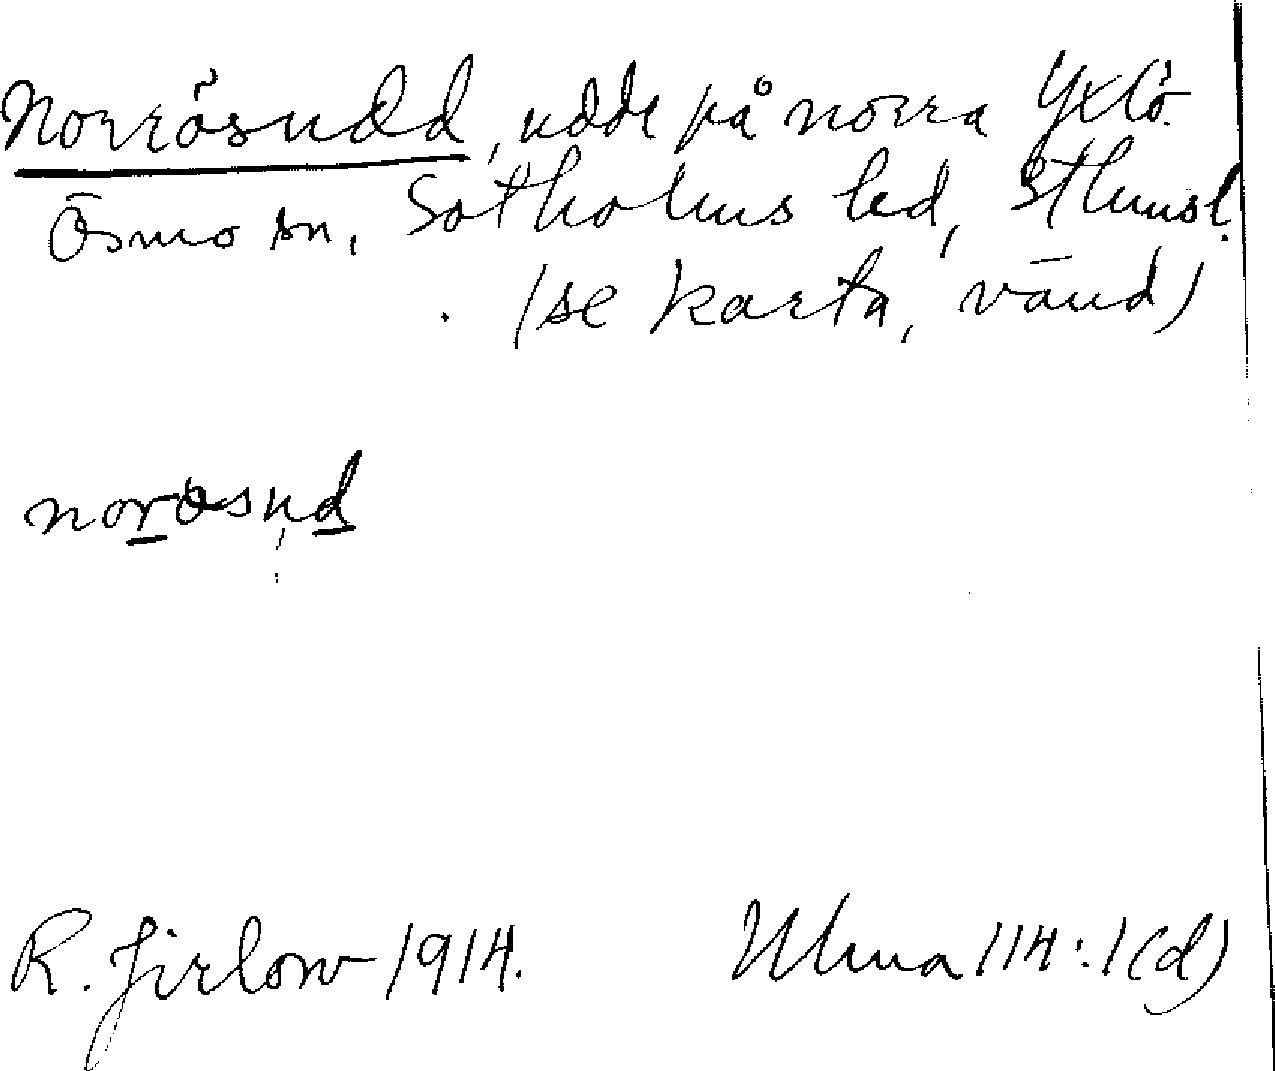 Norrösudd, udde på norra Yxlö.
Ösmo sn, Sotholms hd, Sthmsl.
(se karta, vänd)
norosud
R. Jirlow 1914.
Ulma 114:1(d)